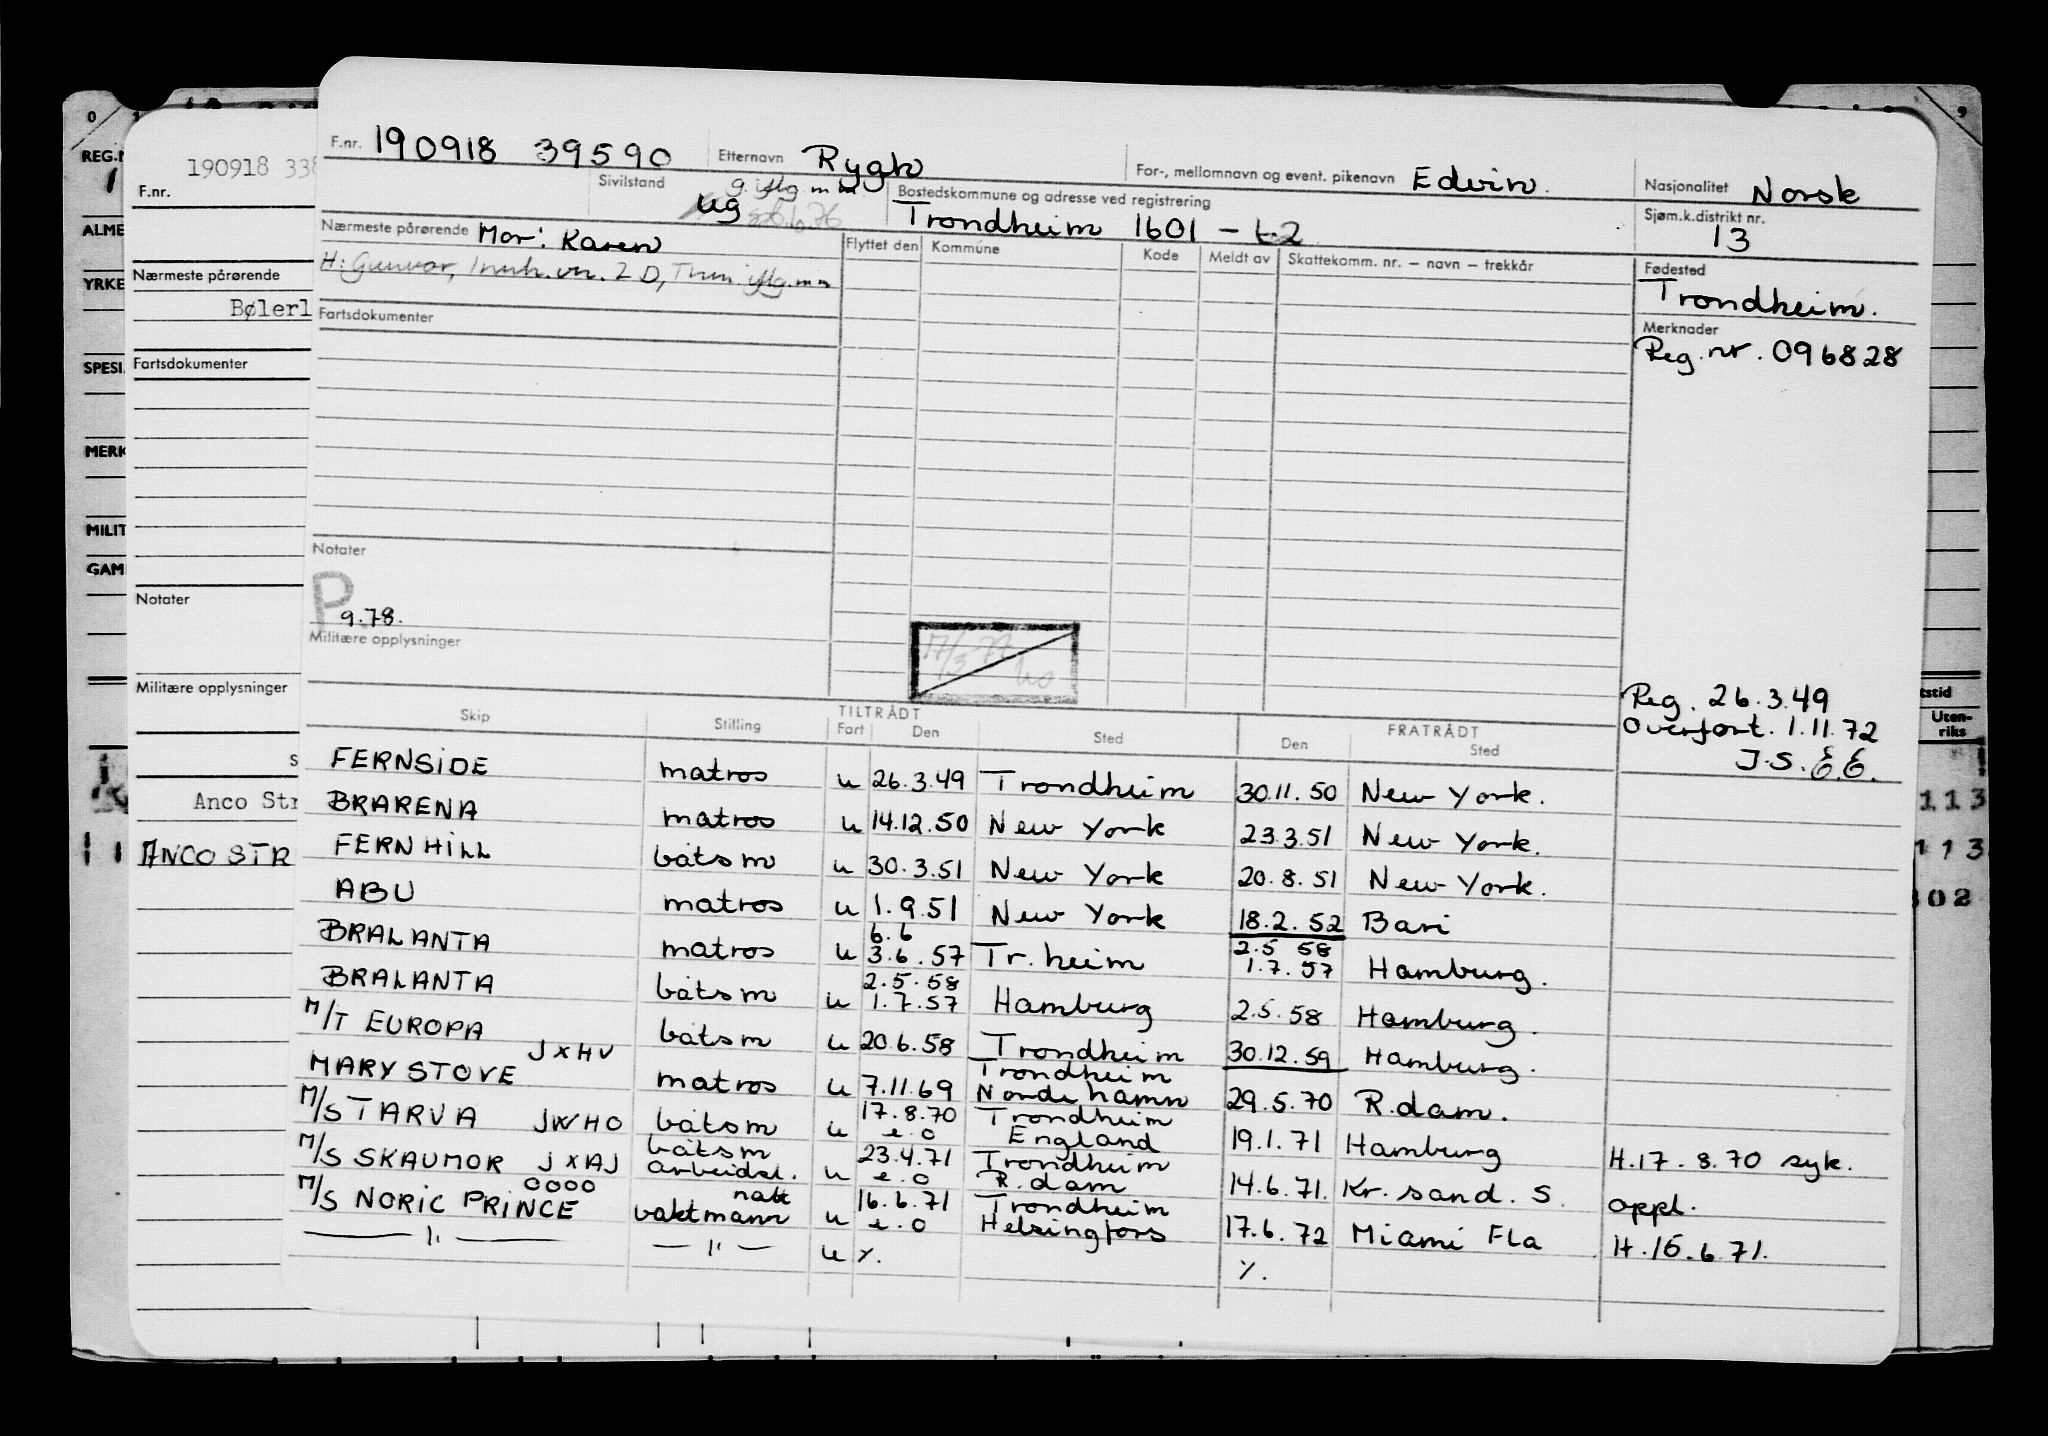 F.nr. 190918 39590 Etternavn Rygh For-, mellomnavn og event. pikenavn Edvin. Nasjonalitet Norsk
Sivilstand ug g. iflg. mm Bostedskommune og adresse ved registrering Trondheim 1601 - t2 Sjøm.k.distrikt nr. 13
Nærmeste pårørende Mor: Karen
H: Gunvor, 2 D, iflg. mm
Flyttet den Kommune Kode Meldt av Skattekomm. nr. – navn – trekkår
Fødested
Trondheim.
Merknader
Reg. nr. 096828
Fartsdokumenter
Notater
P
9.78.
Militære opplysninger
17/3 77
Reg. 26.3.49
Overført. 1.11.72
J.S. E.E.
Skip Stilling TILTRÅDT Fart Den Sted FRATRÅDT Den Sted
FERNSIDE matros u 26.3.49 Trondheim 30.11.50 New York.
BRARENA matros u 14.12.50 New York 23.3.51 New York.
FERNHILL båtsm u 30.3.51 New York 20.8.51 New York.
ABU matros u 1.9.51 New York 18.2.52 Bari
BRALANTA matros u 6.6 3.6.57 Tr.heim 2.5 58 1.7.57 Hamburg.
BRALANTA båtsm u 2.5.58 1.7.57 Hamburg 2.5.58 Hamburg.
M/T EUROPA båtsm u 20.6.58 Trondheim 30.12.59 Hamburg.
MARY STOVE JXHV matros u 7.11.69 Trondheim Nordenhamn 29.5.70 R.dam.
M/S TARVA JWHO båtsm u 17.8.70 e.o Trondheim England 19.1.71 Hamburg H.17.8.70 syk.
M/S SKAUMOR JXAJ båtsm arbeidsl. u 23.4.71 e.o Trondheim R.dam 14.6.71. Kr.sand. S. oppl.
M/S NORIC PRINCE OOOO natt vaktmann u 16.6.71 e.o Trondheim Helsingfors 17.6.72 Miami Fla H.15.6.71.
— " — — " — u %. %.
190918 338
F.nr.
Nærmeste pårørende
Bølerl
Fartsdokumenter
Notater
Militære opplysninger
S
Anco Str
ANCO STR
REG.N
ALME
YRKE
SPESI
MERK
MILIT
GAM
tstid
Uten-
riks
113
113
302